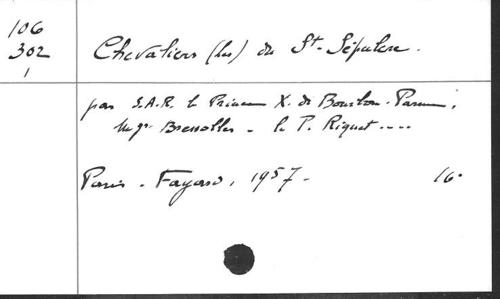 106
302
1
Chevaliers (Les) du St-Sépulcre.
par S.A.R. le Prince X. de Bourbon-Parme,
Mgr Bressolles - le P. Riquet....
Paris - Fayard, 1957 -
16°